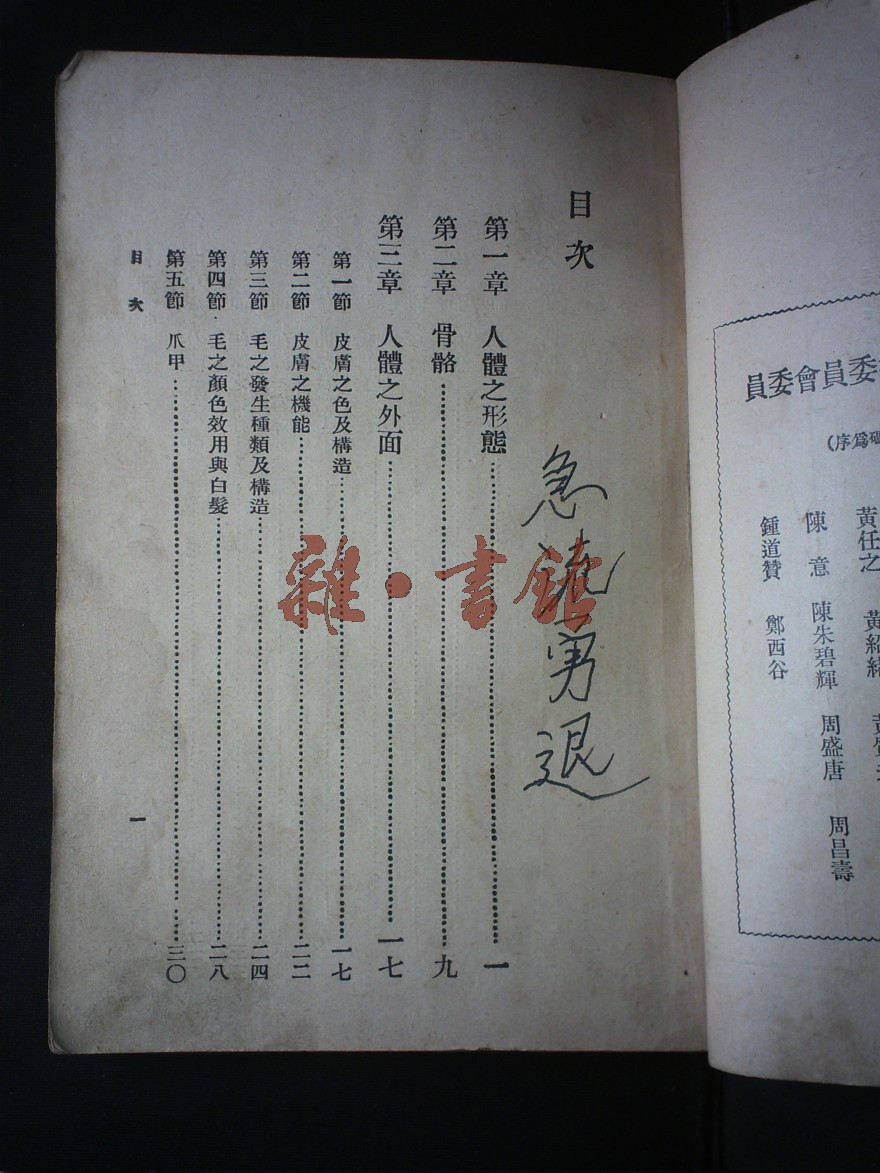 目次
第一章　人體之形態………一
第二章　骨骼………九
第三章　人體之外面………一七
第一節　皮膚之色及構造………一七
第二節　皮膚之機能………二二
第三節　毛之發生種類及構造………二四
第四節　毛之顏色效用與白髮………二八
第五節　爪甲………三〇
目次
一
急流勇退
雜·書館
委員會委員
爲序)
黃任之　黃紹緒
陳　意　陳朱碧輝　周盛唐　周昌壽
鍾道贊　鄭西谷